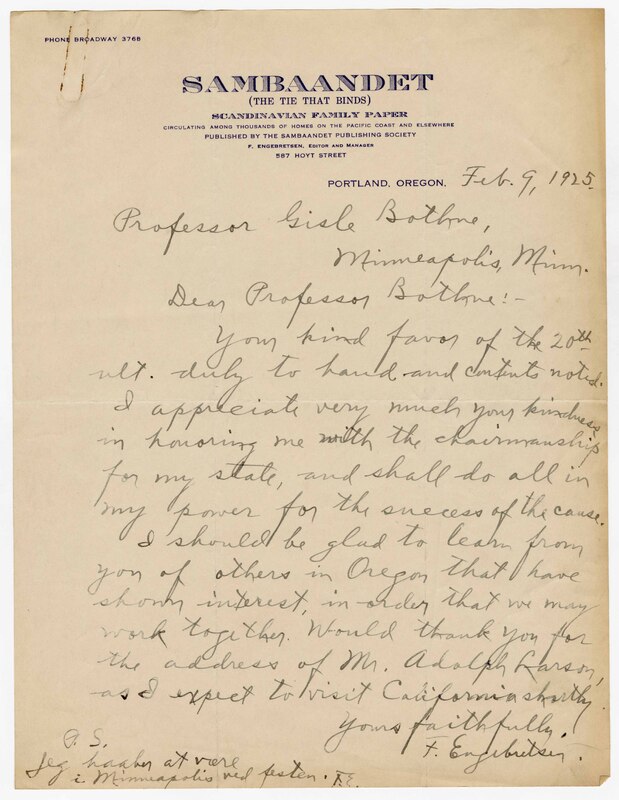 PHONE BROADWAY 3768
SAMBAANDET
(THE TIE THAT BINDS)
SCANDINAVIAN FAMILY PAPER
CIRCULATING AMONG THOUSANDS OF HOMES ON THE PACIFIC COAST AND ELSEWHERE
PUBLISHED BY THE SAMBAANDET PUBLISHING SOCIETY
F. ENGEBRETSEN, EDITOR AND MANAGER
587 HOYT STREET
PORTLAND, OREGON, Feb. 9, 1925.
Professor Gisle Bothne,
Minneapolis, Minn.
Dear Professor Bothne:-
Your kind favor of the 20th
ult. duly to hand and contents noted.
I appreciate very much your kindness
in honoring me with the chairmanship
for my state, and shall do all in
my power for the success of the cause.
I should be glad to learn from
you of others in Oregon that have
shown interest, in order that we may
work together. Would thank you for
the address of Mr. Adolph Larson,
as I expect to visit California shortly.
Yours faithfully,
F. Engebretsen.
P. S.
Jeg haaber at være
i Minneapolis ved festen. F.E.